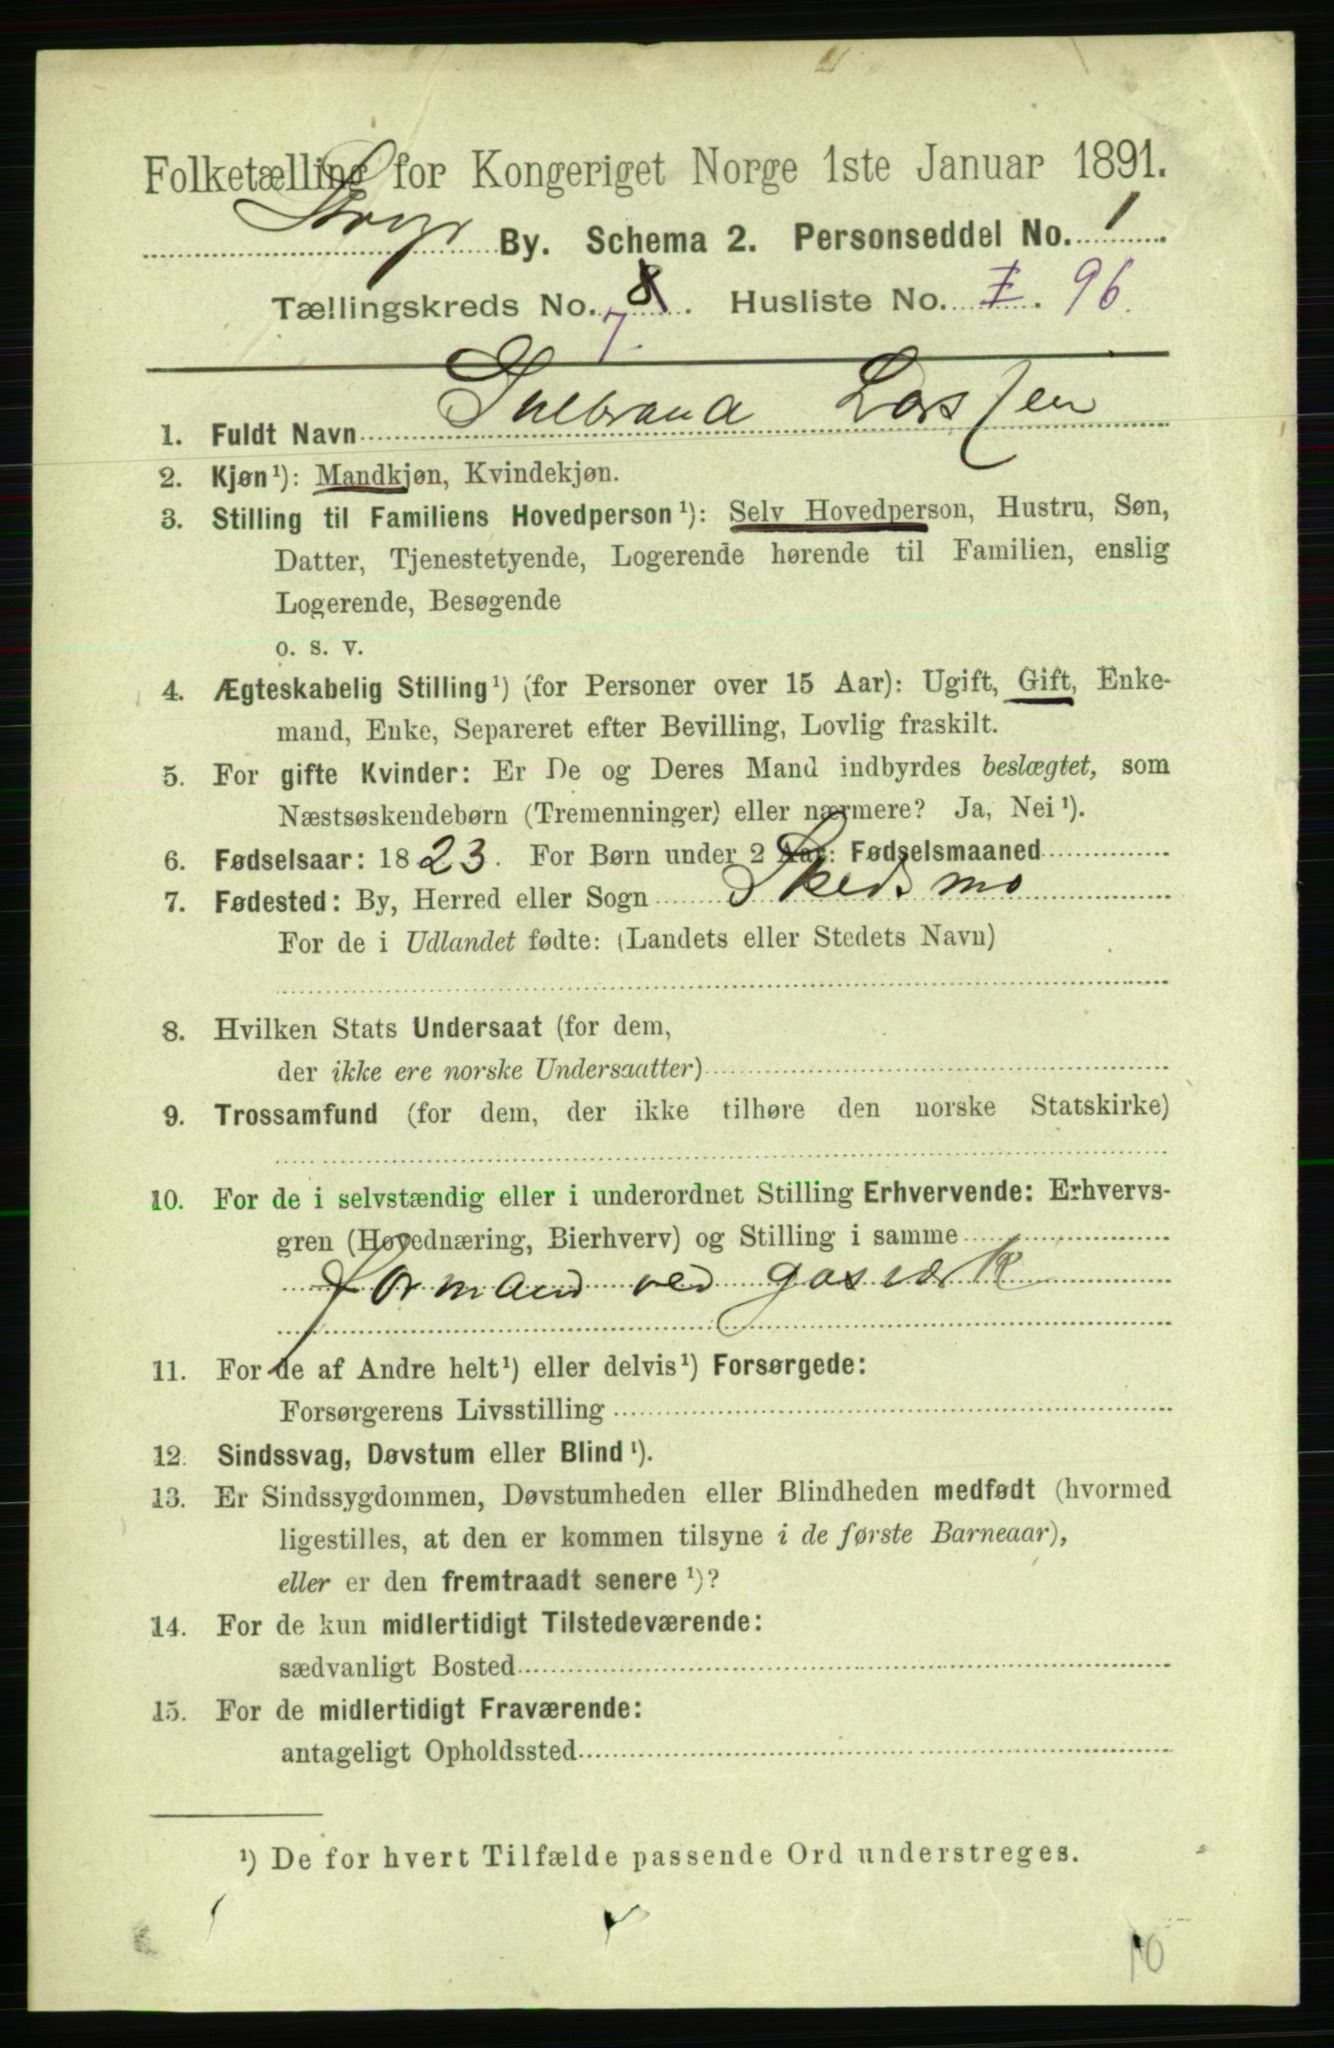 Folketælling for Kongeriget Norge 1ste Januar 1891.
By. Schema 2. Personseddel No. 1
Tællingskreds No. 8 7. Husliste No. 96.
1. Fuldt Navn Gulbrand Larssen
2. Kjøn¹): Mandkjøn, Kvindekjøn.
3. Stilling til Familiens Hovedperson¹): Selv Hovedperson, Hustru, Søn,
Datter, Tjenestetyende, Logerende hørende til Familien, enslig
Logerende, Besøgende
o. s. v.
4. Ægteskabelig Stilling¹) (for Personer over 15 Aar): Ugift, Gift, Enke-
mand, Enke, Separeret efter Bevilling, Lovlig fraskilt.
5. For gifte Kvinder: Er De og Deres Mand indbyrdes beslægtet, som
Næstsøskendebørn (Tremenninger) eller nærmere? Ja, Nei¹).
6. Fødselsaar: 1823. For Børn under 2 Aar: Fødselsmaaned
7. Fødested: By, Herred eller Sogn Skedsmo
For de i Udlandet fødte: (Landets eller Stedets Navn)
8. Hvilken Stats Undersaat (for dem,
der ikke ere norske Undersaatter)
9. Trossamfund (for dem, der ikke tilhøre den norske Statskirke)
10. For de i selvstændig eller i underordnet Stilling Erhvervende: Erhvervs-
gren (Hovednæring, Bierhverv) og Stilling i samme
Formand ved gasværk
11. For de af Andre helt¹) eller delvis¹) Forsørgede:
Forsørgerens Livsstilling
12. Sindssvag, Døvstum eller Blind¹).
13. Er Sindssygdommen, Døvstumheden eller Blindheden medfødt (hvormed
ligestilles, at den er kommen tilsyne i de første Barneaar),
eller er den fremtraadt senere¹)?
14. For de kun midlertidigt Tilstedeværende:
sædvanligt Bosted
15. For de midlertidigt Fraværende:
antageligt Opholdssted
¹) De for hvert Tilfælde passende Ord understreges.
10